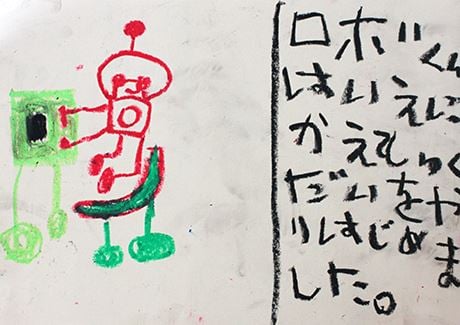 ロボくん
はいえに
かえてしゅく
だいをや
りはじめま
した。